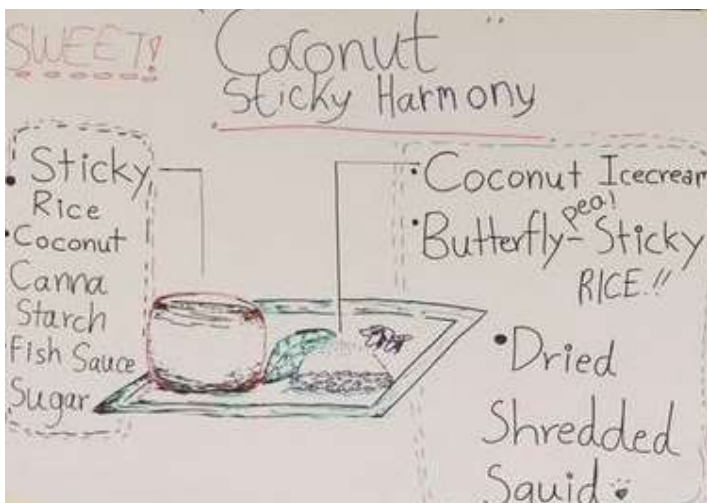 SWEET!
"Coconut"
Sticky Harmony
• Sticky
Rice
• Coconut
Canna
Starch
Fish Sauce
Sugar
• Coconut Icecream
• Butterfly-pea! Sticky
RICE!!
• Dried
Shredded
Squid